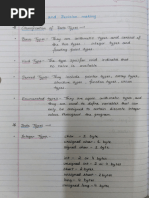 Unit - Decision making
Classification of Data Types :-
Basic Types :- They are arithmetic types and consist of
the two types : integer types and
floating point types.
Void Type :- The type specifier void indicates that
no value is available.
Derived Type :- They include pointer types, array types,
structure types, union types and
function types.
Enumerated types :- They are again arithmetic types and
they are used to define variables that can
only be assigned certain discrete integer
values throughout the program.
Data Types :-
Integer Types :-
char - 1 byte
unsigned char - 1 byte
signed char - 1 byte
int - 2 or 4 byte
unsigned int - 2 or 4 byte
short - 2 byte
unsigned short - 2 byte
long - 4 byte
unsigned long - 4 byte